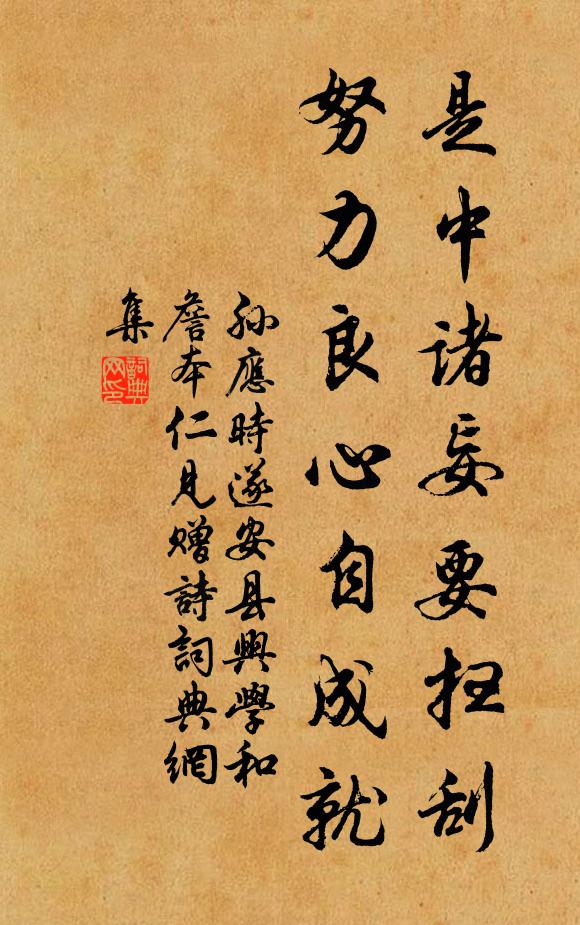 是中诸妄要扫刮
努力良心自成就
孙應時遂安县興學和
詹本仁見赠詩詞典網
集
詞典
网印